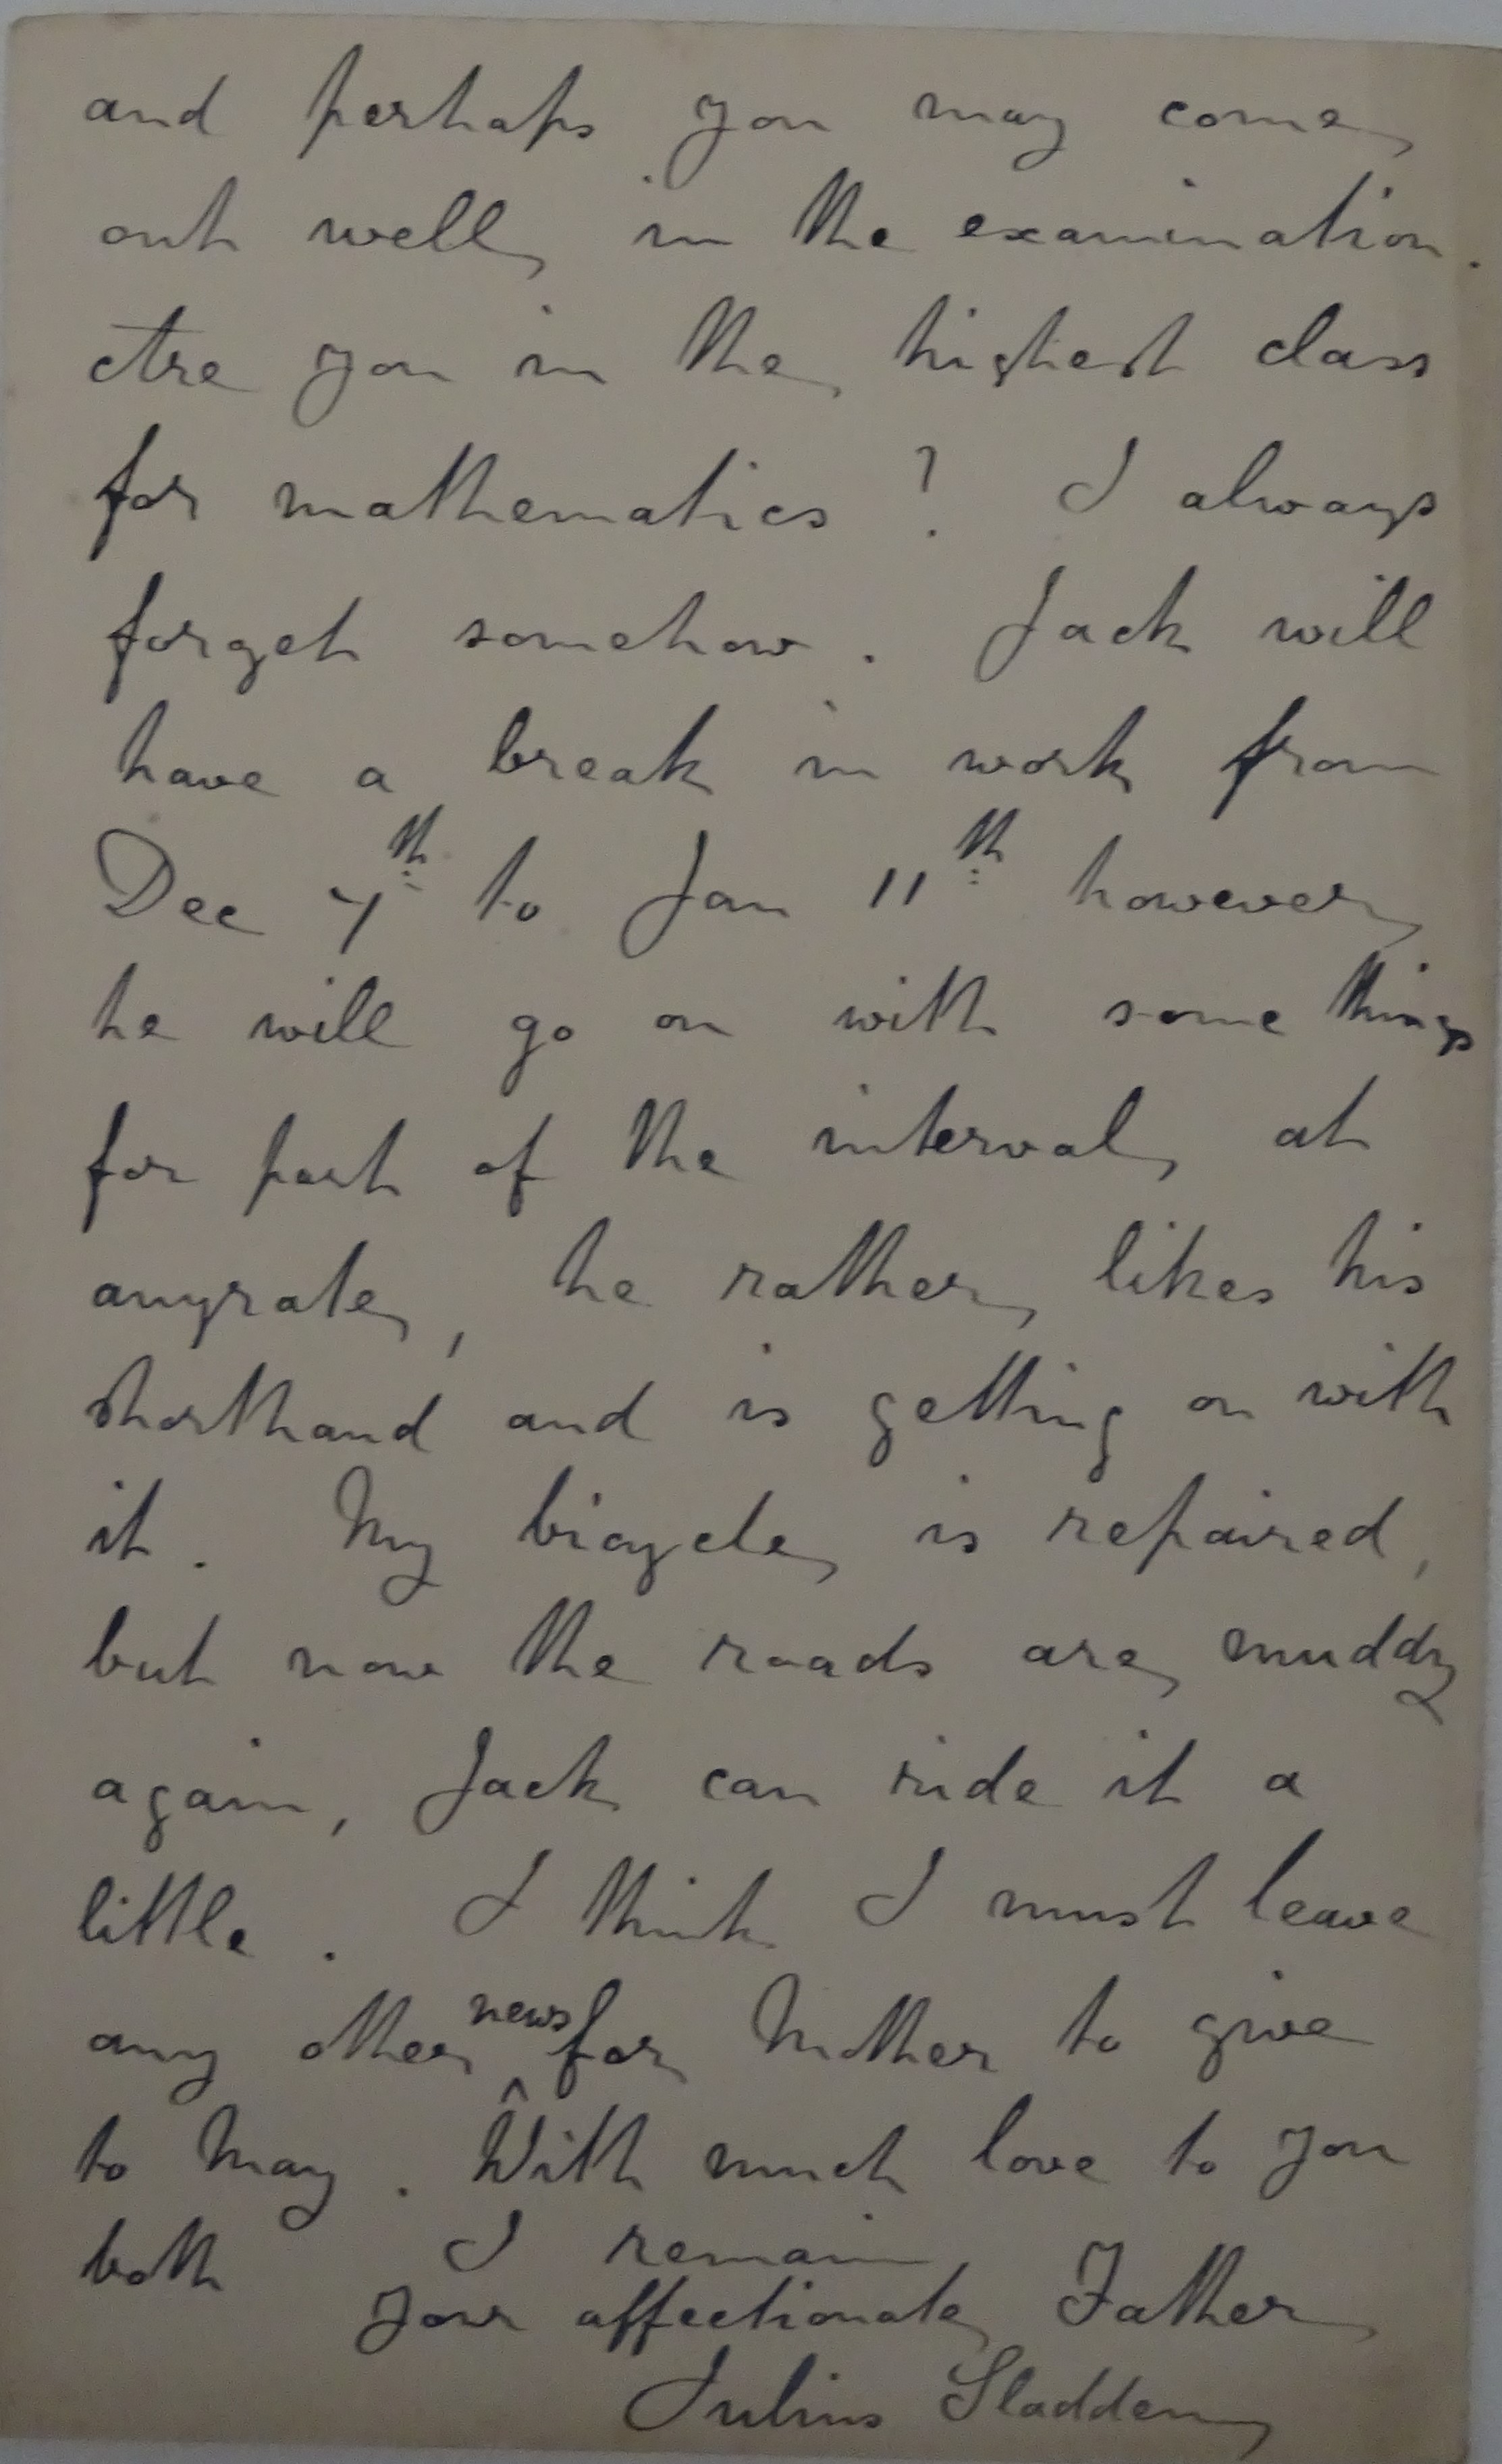 and perhaps you may come
out well in the examination.
Are you in the highest class
for mathematics? I always
forget somehow. Jack will
have a break in work from
Dec 7th to Jan 11th however
he will go on with some things
for part of the interval at
anyrate, he rather likes his
shorthand and is getting on with
it. My bicycle is repaired,
but now the roads are muddy
again, Jack can ride it a
little. I think I must leave
any other news for Mother to give
to May. With much love to you
both I remain
your affectionate Father
Julius Sladden